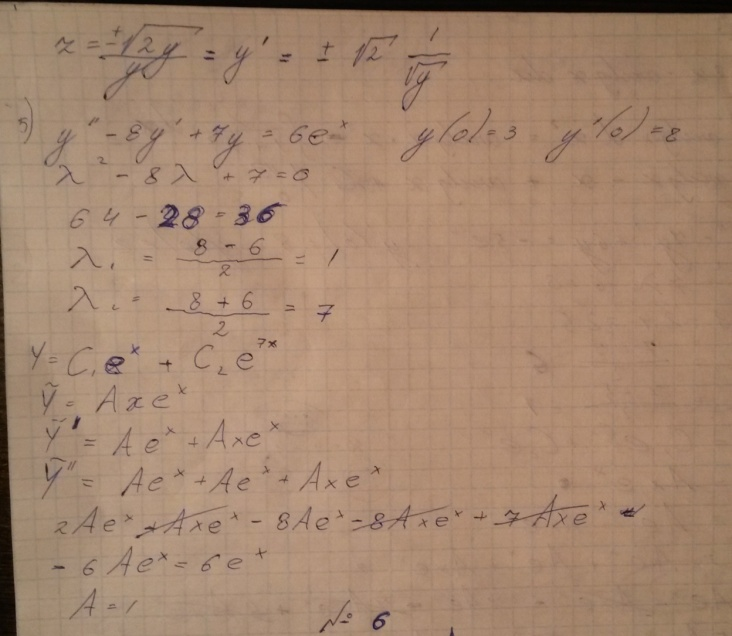 z = ±√2y / y = y' = ± √2 1/√y
5) y'' - 8y' + 7y = 6e^x y(0)=3 y'(0)=8
λ² - 8λ + 7 = 0
64 - 28 = 36
λ₁ = (8 - 6)/2 = 1
λ₂ = (8 + 6)/2 = 7
Y = C₁e^x + C₂e^7x
Ỹ = Axe^x
Ỹ' = Ae^x + Axe^x
Ỹ'' = Ae^x + Ae^x + Axe^x
2Ae^x + Axe^x - 8Ae^x - 8Axe^x + 7Axe^x =
- 6Ae^x = 6e^x
A = 1
№ 6